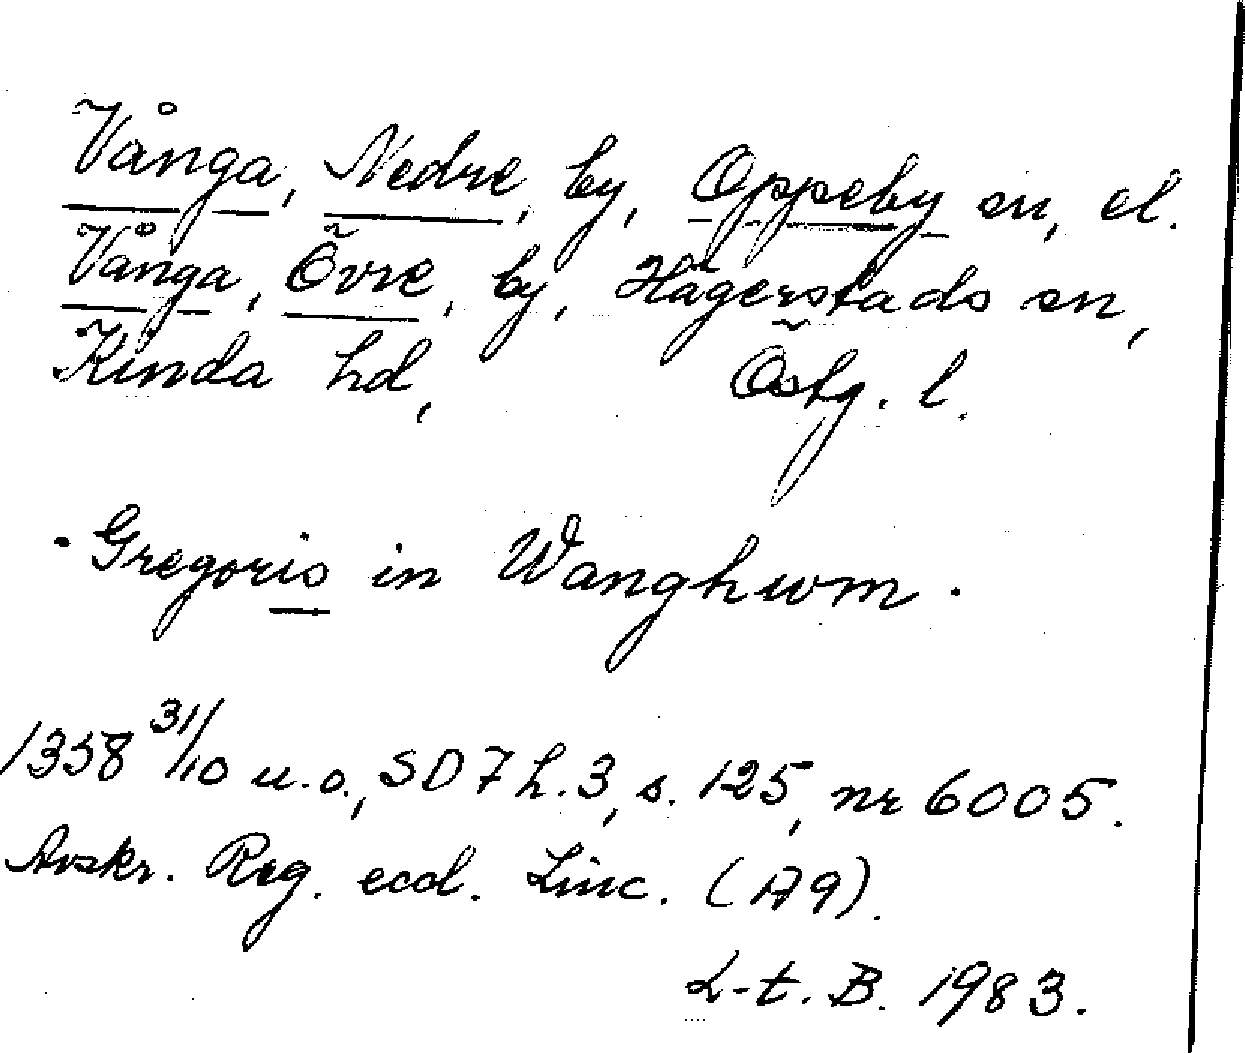 Vånga, Nedre, by, Oppeby sn, el.
Vånga, Övre, by, Hägerstads sn,
Kinda hd, Östg. l.
· Gregoris in Wanghwm.
1358 31/10 u.o., SD 7 h. 3, s. 125, nr 6005.
Avskr. Reg. eccl. Linc. (A 9).
L-t. B. 1983.